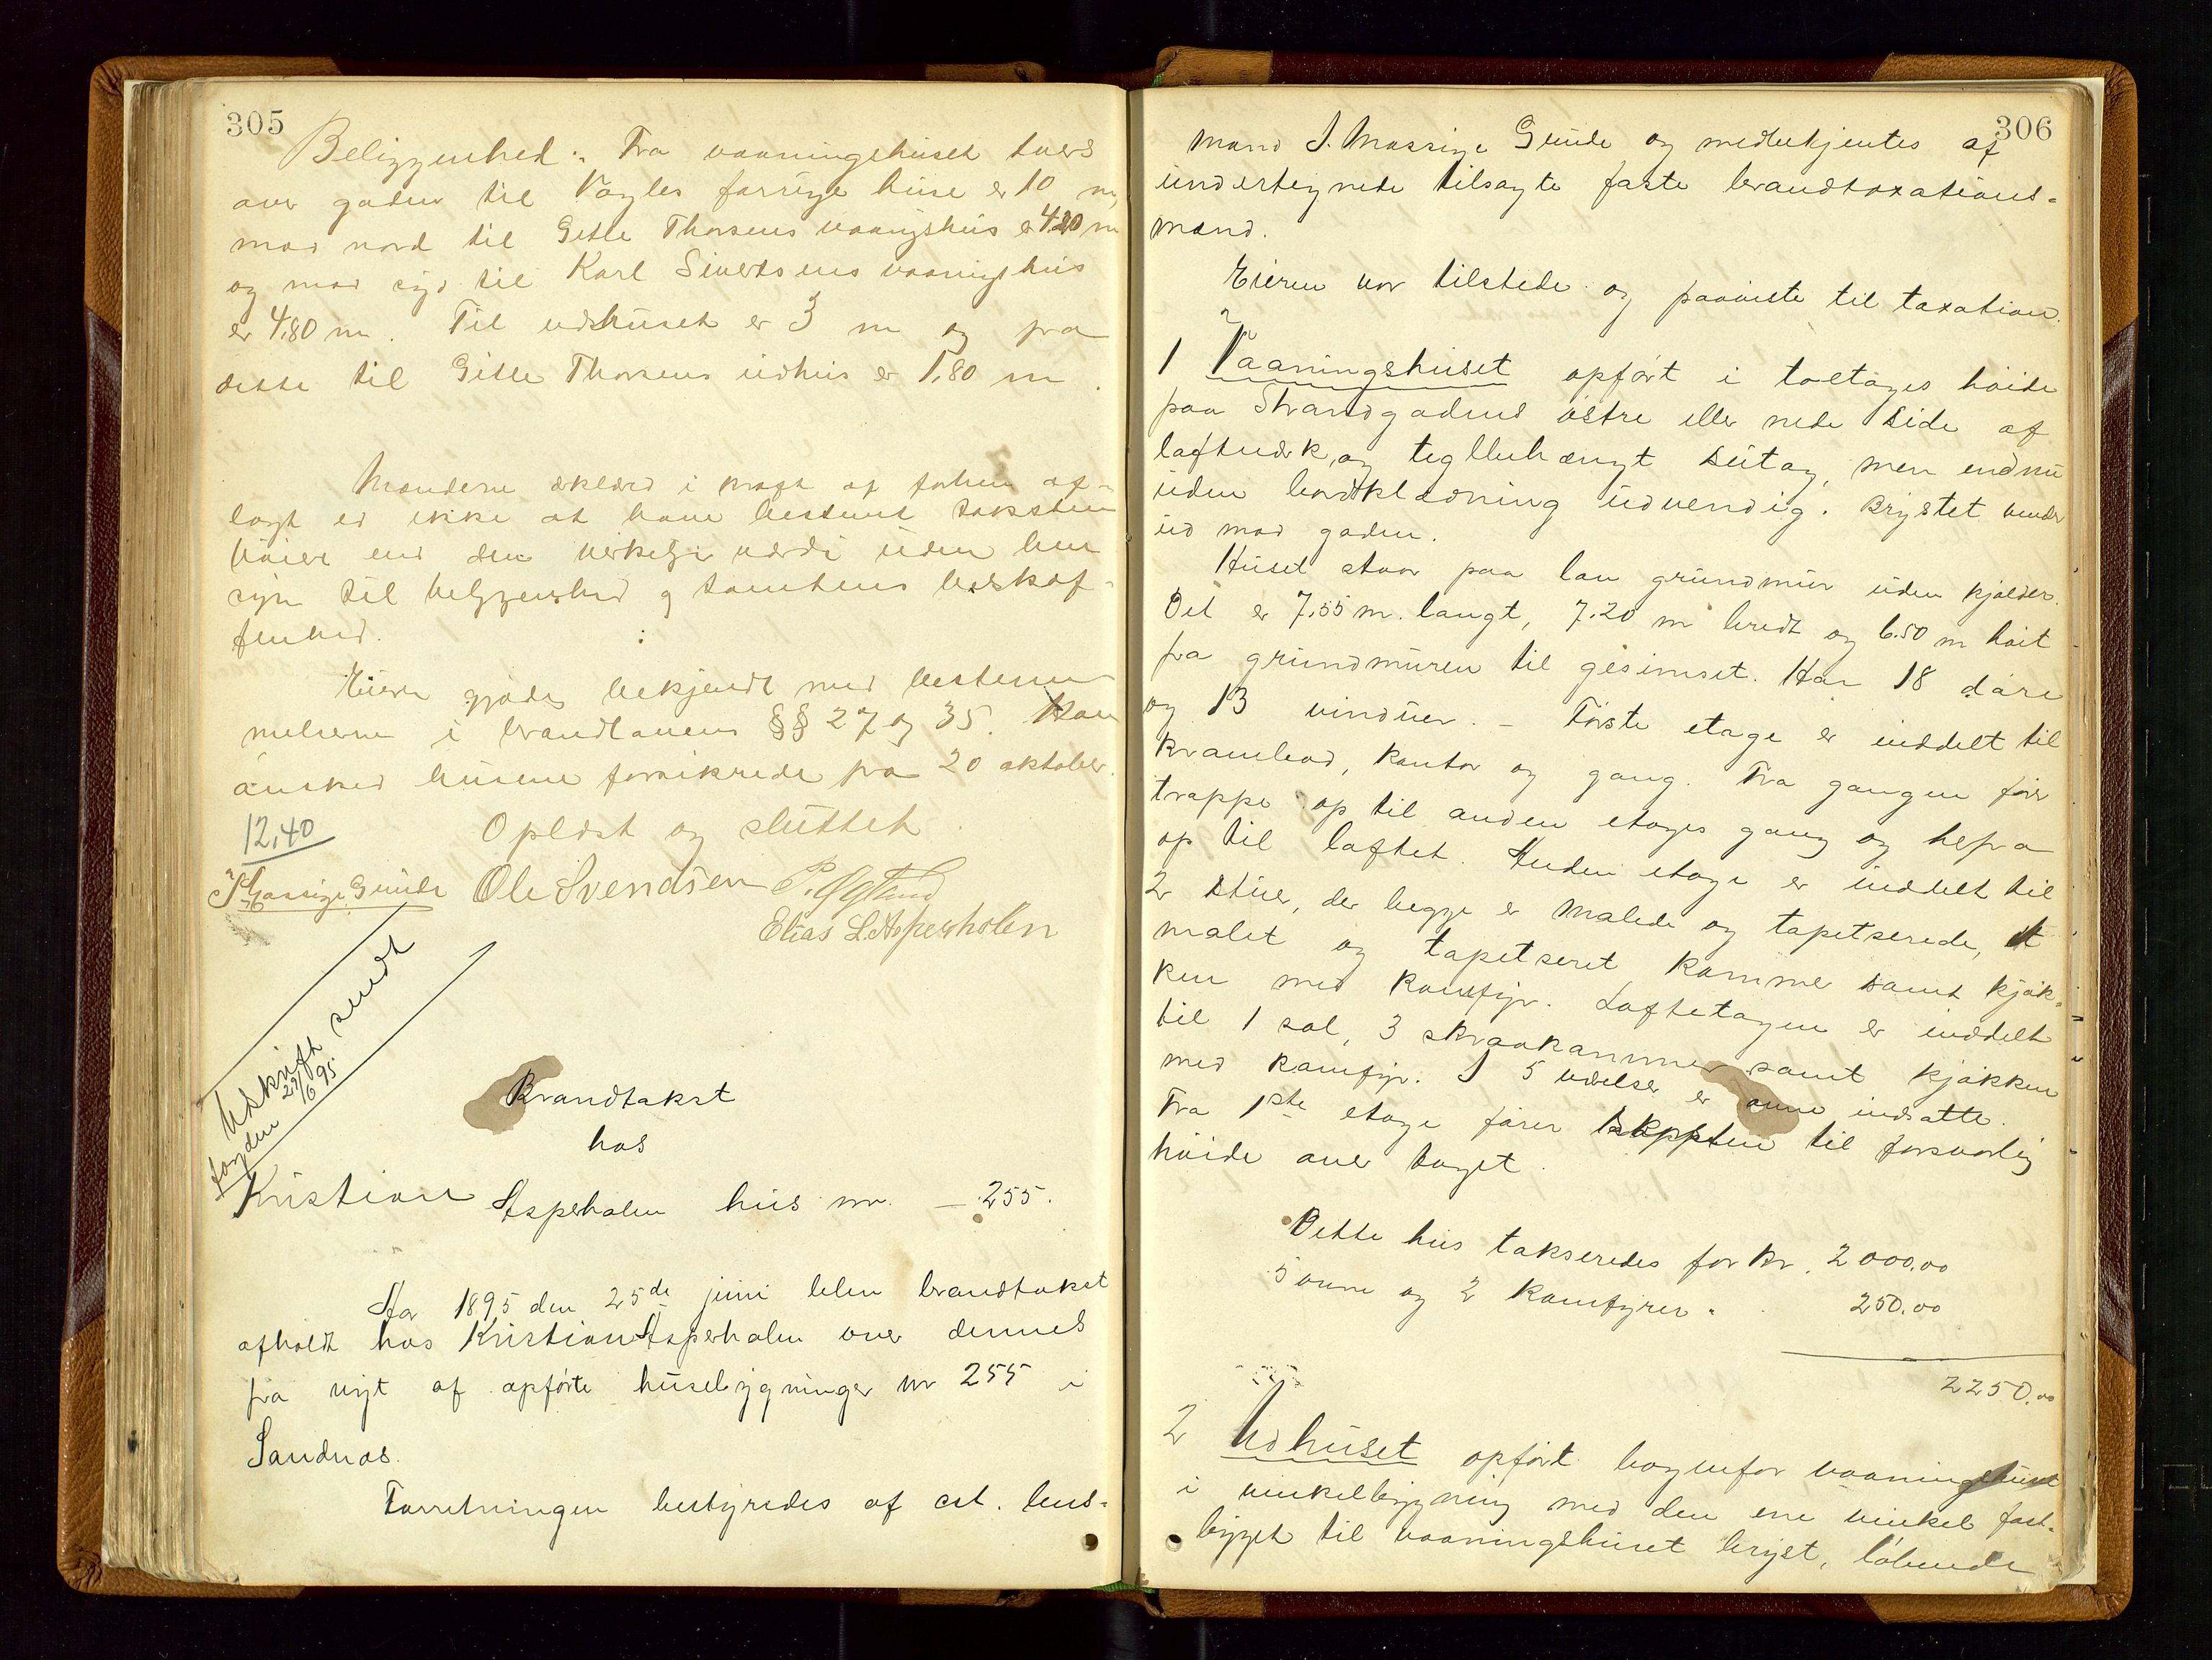 305
Beliggenhed. Fra vaaningshuset tvers
over gaden til Vagles forrige huse er 10 m,
mod nord til Gitle Thorsens vaaningshus er 4.20 m
og mod syd til Karl Sivertsens vaaningshus
er 4,80 m. Til udshuset er 3 m og fra
dette til Gitle Thorsens udhus er 1,80 m.
Mændene erklærd i kraft af forhen af-
lagt ed ikke at have bestemt taksten
høiere end den verkelige værdi uden hen
syn til beliggenhed og tomtens beskaf-
fenhed.
Eieren gjordes bekjendt med bestem
melserne i brandlovens §§ 27 og 35. Han
ønsked husene forsikrede fra 20 oktober.
12,40
Oplæst og sluttet.
J. Massige Gunde Ole Svendsen P. Østend
Elias L. Aspesholen
Udskrift sendt
fogden 29/6 95
Brandtakst
hos
Kristian Aspeholen hus nr. – 255.
Aar 1895 den 25de juni blev brandtakst
afholdt hos Kristian Aspeholen over dennes
fra nyt af opførte husebygninger nr 255 i
Sandnæs.
Forretningen bestyredes af cst. lens-
306
mand J. Massige Gunde og medbekjentes af
undertegnede tilsagte faste brandtaxations-
mænd.
Eieren var tilstede og paaviste til taxation.
1 Vaaningshuset opført i toetages høide
paa Strandgadens østre eller nede side af
laftverk og tegllhængt sutag, men endnu
uden bordklædning udvendig. Brystet vender
ud mod gaden.
Huset staar paa lav grundmur uden kjælder.
Det er 7.55 m. langt, 7.20 m bredt og 6.50 m høit
fra grundmuren til gesimset. Har 18 døre
og 13 vinduer. – Første etage er inddelt til
krambod, kontor og gang. Fra gangen fører
trappe op til anden etages gang og hefra
op til loftet. Anden etage er inddelt til
2 stuer, der begge er malede og tapetserede, et
malet og tapetseret kammer samt kjøk-
ken med komfyr. Loftetagen er inddelt
til 1 sal, 3 skraakammer samt kjøkken
med komfyr. I 5 udelser er ovne indsatte.
Fra 1ste etage fører skorsten til forsvarlig
høide over taget.
Dette hus takseredes for kr. 2000.00
5 ovne og 2 komfyrer " 250.00
2250.00
2 Udhuset opført bagenfor vaaningshuset
i vinkelbygning med den ene vinkel fast-
bygget til vaaningshuset bryst, løbende